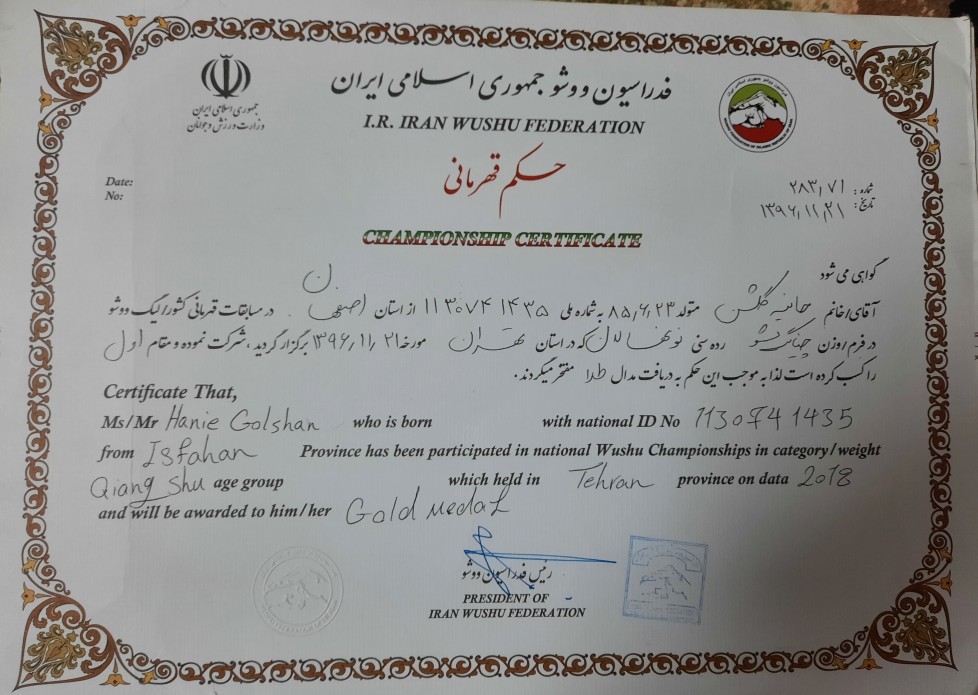 فدراسیون ووشو جمهوری اسلامی ایران
I.R. IRAN WUSHU FEDERATION
جمهوری اسلامی ایران
وزارت ورزش و جوانان
حکم قهرمانی
Date:
No:
شماره: ۲۸۳,۷۱
تاریخ: ۱۳۹۶,۱۱,۲۱
CHAMPIONSHIP CERTIFICATE
گواهی می شود
آقای/خانم هانیه گلشن متولد ۸۵,۶,۲۳ به شماره ملی ۱۱۳۰۷۴۱۴۳۵ از استان اصفهان در مسابقات قهرمانی کشور/لیگ ووشو
در فرم/وزن چیانگ شو رده سنی نونهالان که در استان تهران مورخه ۱۳۹۶,۱۱,۲۱ برگزار گردید، شرکت نموده و مقام اول
را کسب کرده است لذا به موجب این حکم به دریافت مدال طلا مفتخر میگردند.
Certificate That,
Ms/Mr Hanie Golshan who is born with national ID No 1130741435
from Isfahan Province has been participated in national Wushu Championships in category/weight
Qiang Shu age group which held in Tehran province on data 2018
and will be awarded to him/her Gold Medal
رئیس فدراسیون ووشو
PRESIDENT OF
IRAN WUSHU FEDERATION